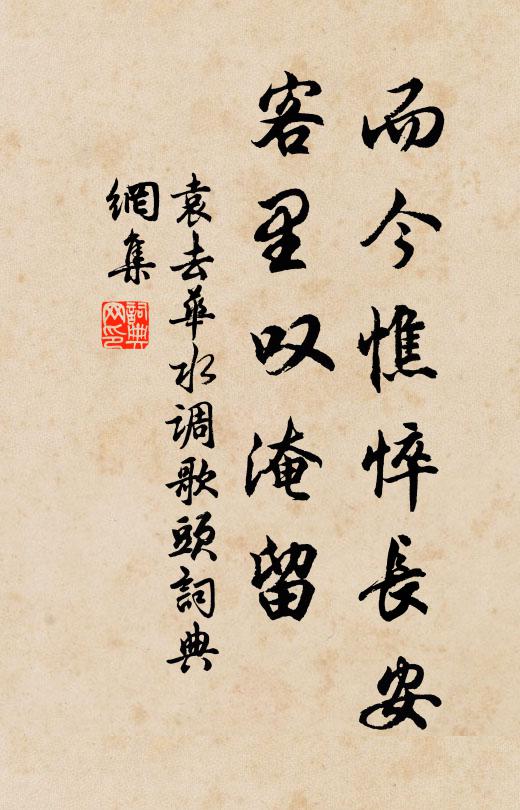 而今憔悴長安
客里叹淹留
袁去華水调歌頭詞典
網集
詞典
网印